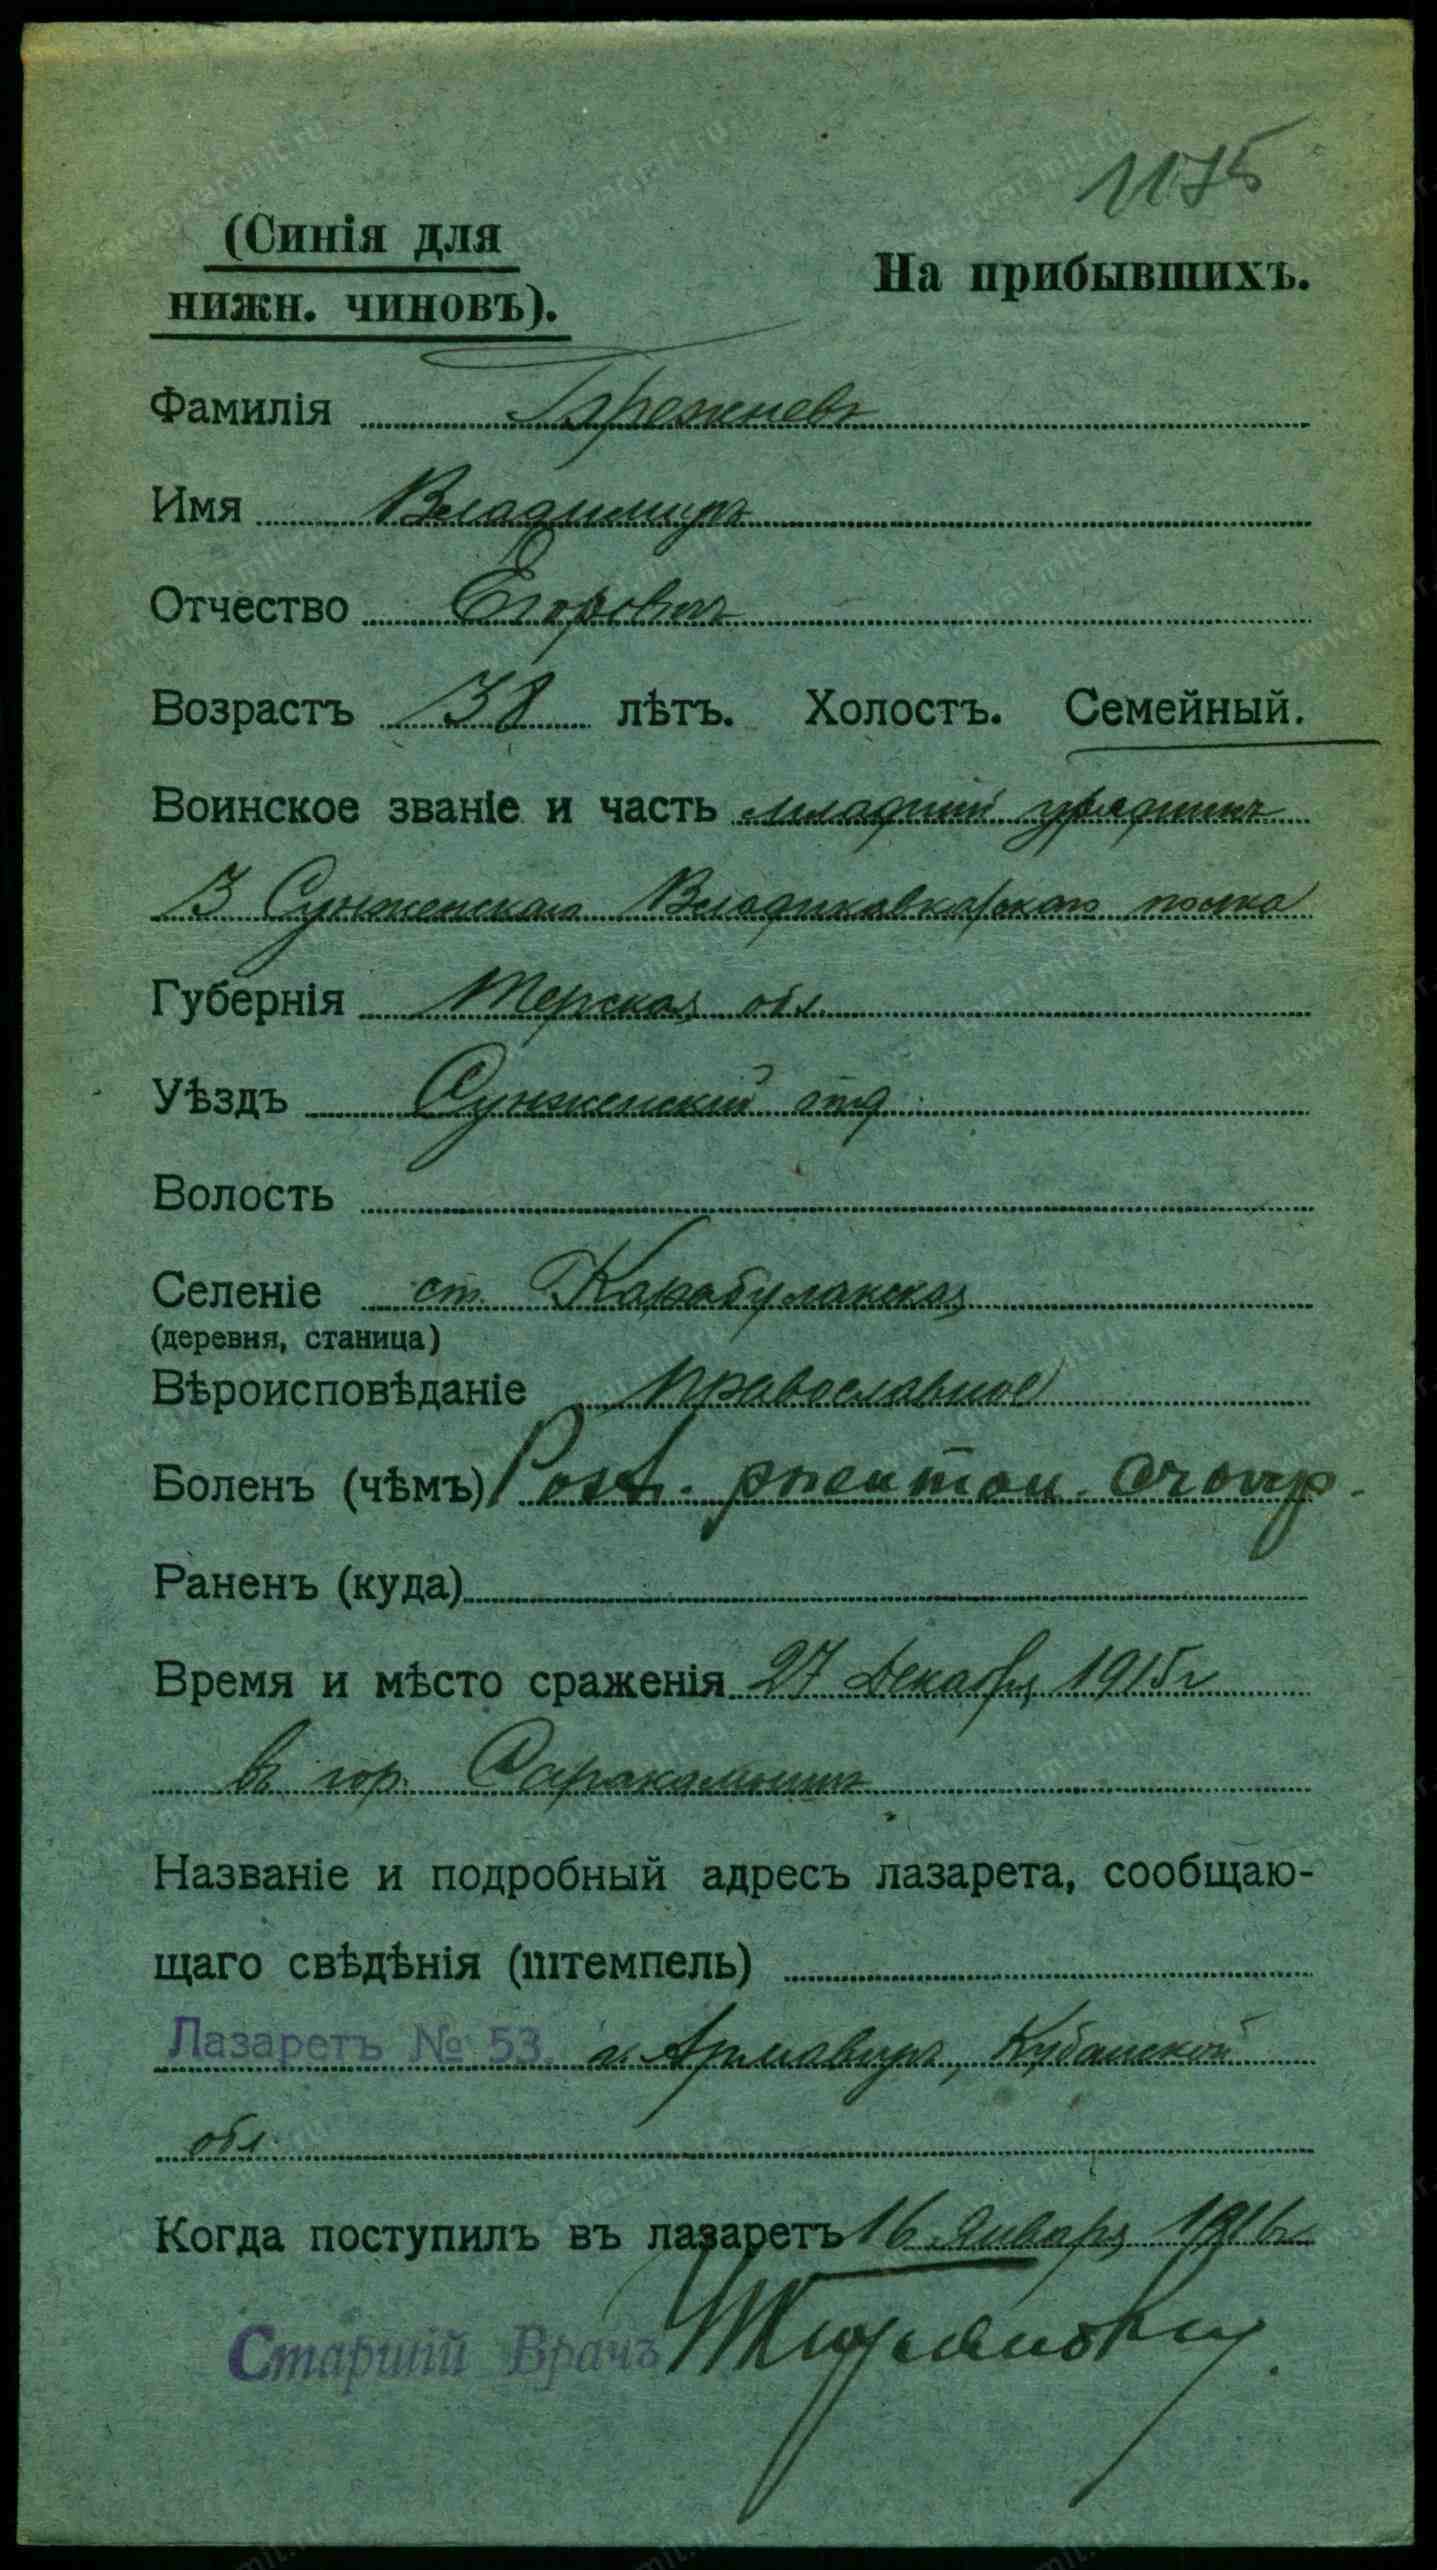 1175
(Синія для
нижн. чиновъ).
На прибывшихъ.
Фамилія
Имя Владимиръ
Отчество Егоровичъ
Возрастъ 38 лѣтъ. Холостъ. Семейный.
Воинское званіе и часть младшій урядникъ
3 Сунженскаго Владикавказскаго полка
Губернія Терская обл.
Уѣздъ Сунженскій отд
Волость
Селеніе ст. Карабулакская
(деревня, станица)
Вѣроисповѣданіе православное
Боленъ (чѣмъ) Post. pneumon. croup.
Раненъ (куда)
Время и мѣсто сраженія 27 Декабря 1915 г
въ гор. Саракамышъ
Названіе и подробный адресъ лазарета, сообщаю-
щаго свѣдѣнія (штемпель)
Лазаретъ № 53. г. Армавиръ, Кубанской
обл.
Когда поступилъ въ лазаретъ 16 Января 1916 г.
Старшій Врачъ